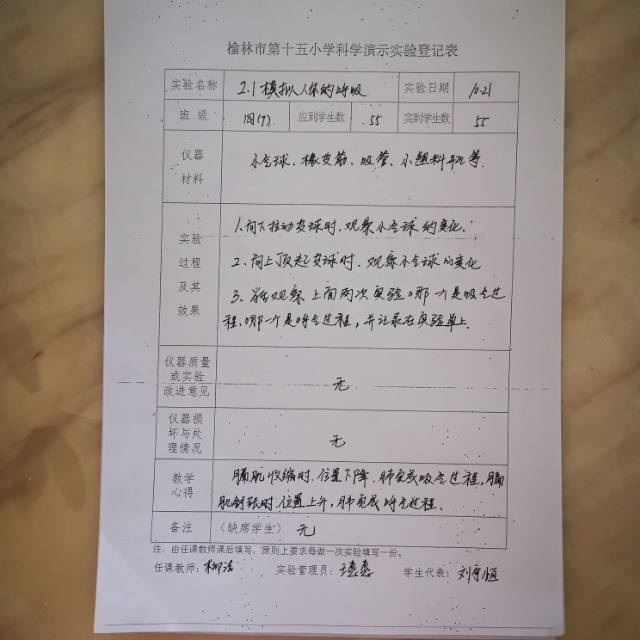 榆林市第十五小学科学演示实验登记表
实验名称 2.1 模拟人体的呼吸 实验日期 10.21
班 级 四(7) 应到学生数 55 实到学生数 55
仪器
材料
小气球、橡皮筋、吸管、小塑料瓶等
实验
过程
及其
效果
1.向下拉动皮球时,观察小气球的变化.
2、向上顶起皮球时,观察小气球的变化
3、观察上面两次实验,哪一个是吸气过
程,哪一个是呼气过程,并记录在实验单上.
仪器质量
或实验
改进意见
无
仪器损
坏与处
理情况
无
教学
心得
膈肌收缩时,位置下降,肺完成吸气过程,膈
肌舒张时,位置上升,肺完成呼气过程.
备注 (缺席学生) 无
注:由任课教师课后填写,原则上要求每做一次实验填写一份。
任课教师:柳洁 实验管理员: 学生代表: